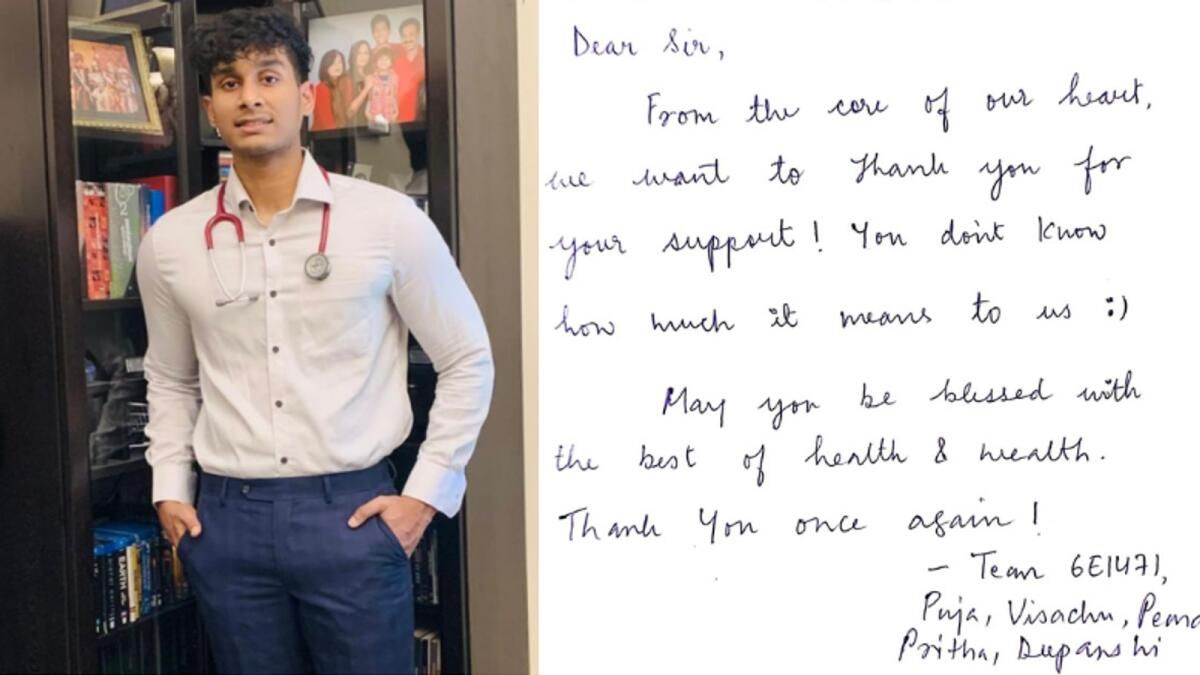 Dear Sir,
From the core of our heart,
we want to Thank you for
your support! You don't know
how much it means to us :)
May you be blessed with
the best of health & wealth.
Thank You once again!
- Team 6E1471,
Puja, Visachu, Pema
Pritha, Deepanshi
EARTH